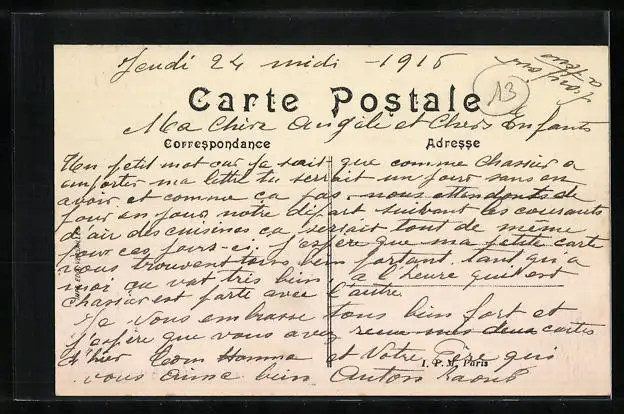 Jeudi 24 midi - 1915
13
Carte Postale
Ma Chère Angèle et Chers Enfants
Correspondance
Adresse
Un petit mot car je sait que comme Chassier a
emporter ma lettre tu serrait un jour sans en
avoir et comme ca pas. nous attendonts de
jour en jour notre départ suivant les courants
d'air des cuisines ca serrait tout de meme
pour ces jours-ci. j'espère que ma petite carte
vous trouverat tous bien portant. tant qu'a
moi ca vat très bien a l'heure quil est
Chassier est parti avec l'autre.
Je vous embrasse tous bien fort et
j'espère que vous avez recu mes deux cartes
d'hier Ton Homme et Votre Père qui
vous aime bien
I. P. M. Paris